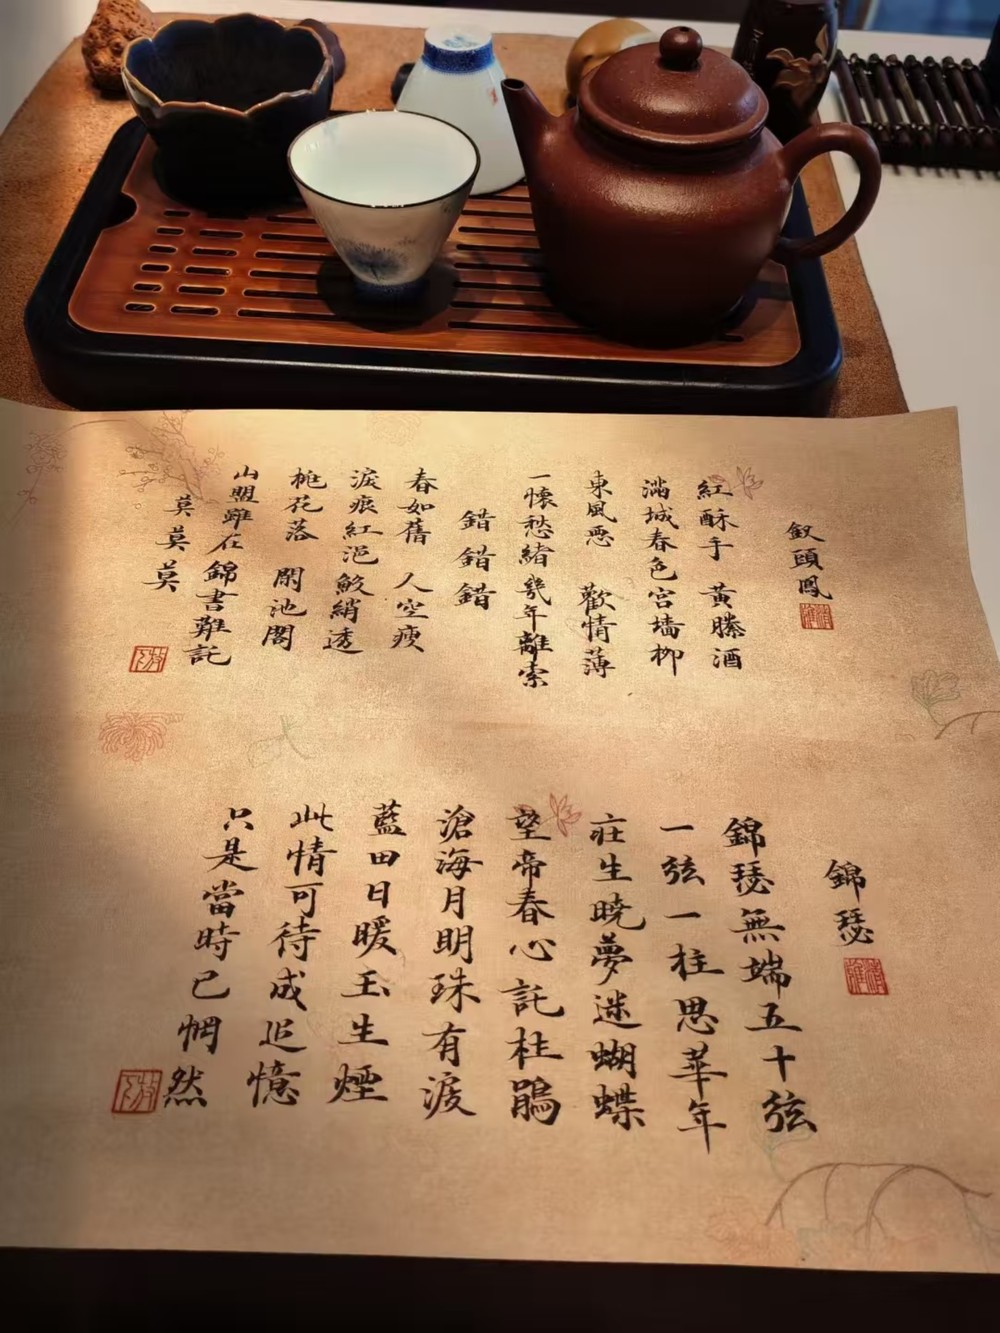 釵頭鳳
紅酥手 黃縢酒
滿城春色宮墻柳
東風惡 歡情薄
一懷愁緒幾年離索
錯錯錯
春如舊 人空瘦
淚痕紅浥鮫綃透
桃花落 閑池閣
山盟雖在錦書難託
莫莫莫
錦瑟
錦瑟無端五十弦
一弦一柱思華年
莊生曉夢迷蝴蝶
望帝春心託杜鵑
滄海月明珠有淚
藍田日暖玉生煙
此情可待成追憶
只是當時已惘然